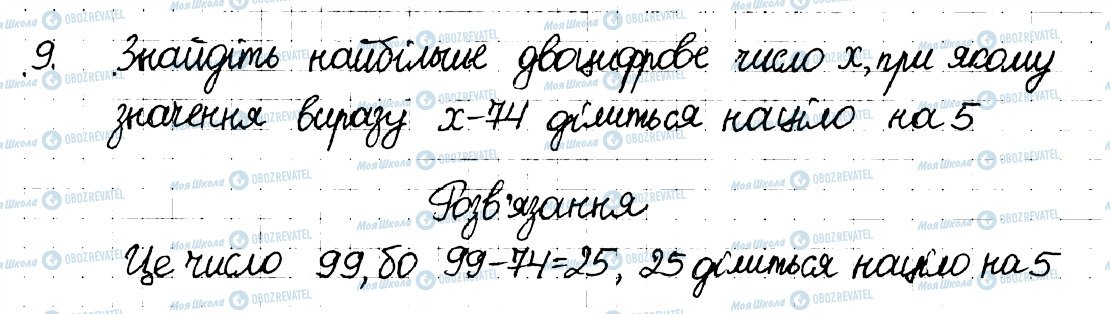 9. Знайдіть найбільше двоцифрове число x, при якому
значення виразу x-74 ділиться націло на 5
Розв'язання
Це число 99, бо 99-74=25, 25 ділиться націло на 5